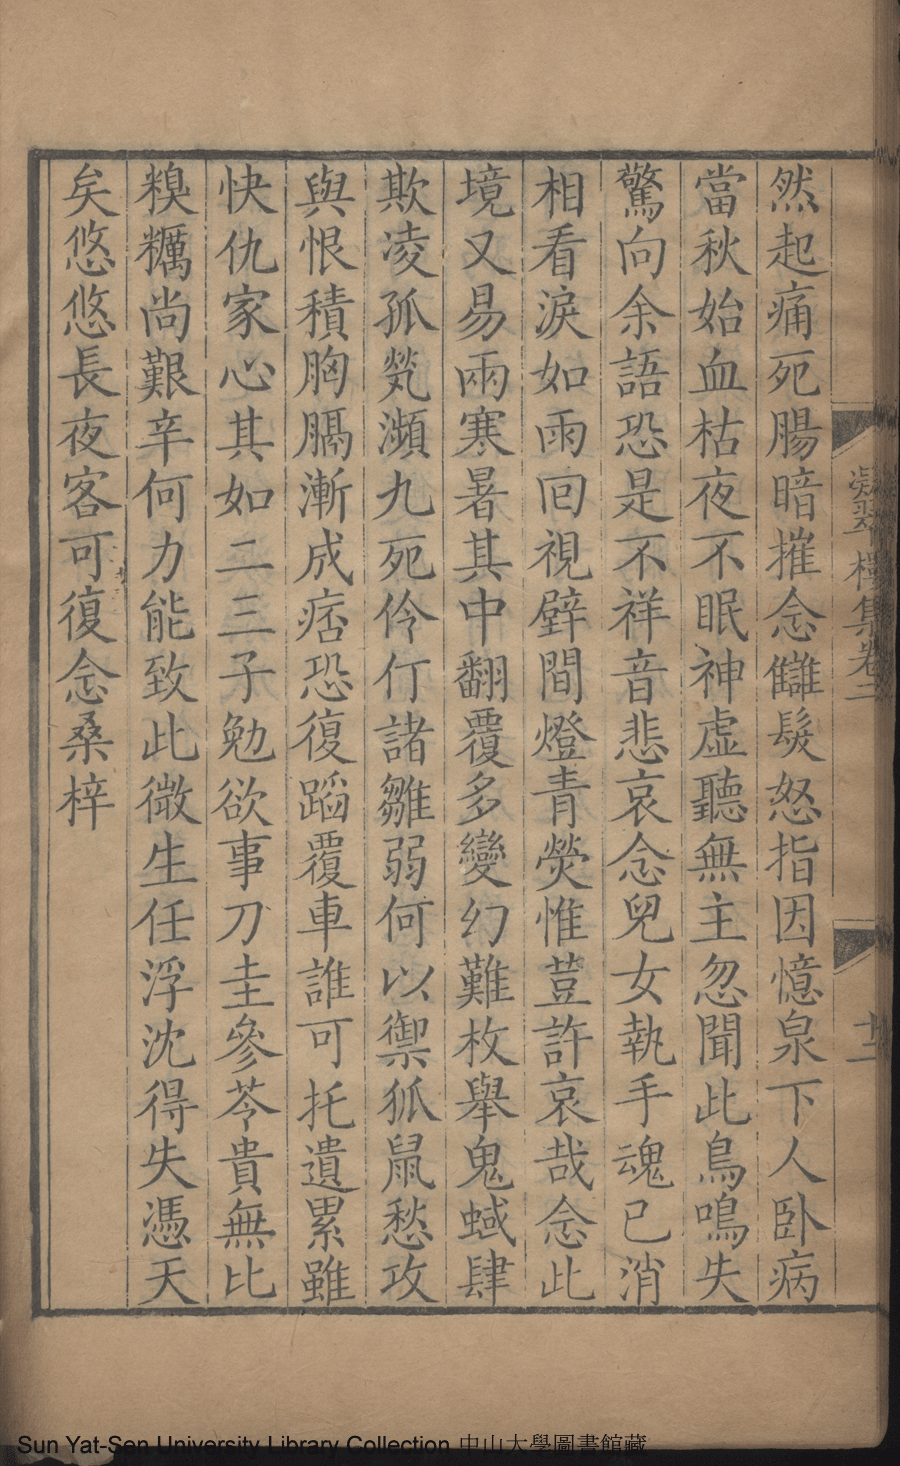 然起痛死腸暗摧念讎髮怒指因憶泉下人卧病
當秋始血枯夜不眠神虛聽無主忽聞此鳥鳴失
驚向余語恐是不祥音悲哀念兒女執手魂已消
相看淚如雨回視壁間燈青熒惟荳許哀哉念此
境又易兩寒暑其中翻覆多變幻難枚舉鬼蜮肆
欺凌孤煢瀕九死伶仃諸雛弱何以禦狐鼠愁攻
與恨積胸膈漸成痞恐復蹈覆車誰可托遺累雖
快仇家心其如二三子勉欲事刀圭參苓貴無比
糗糲尚艱辛何力能致此微生任浮沈得失憑天
矣悠悠長夜客可復念桑梓
凝翠樓集卷二
廿一
Sun Yat-Sen University Library Collection 中山大學圖書館藏